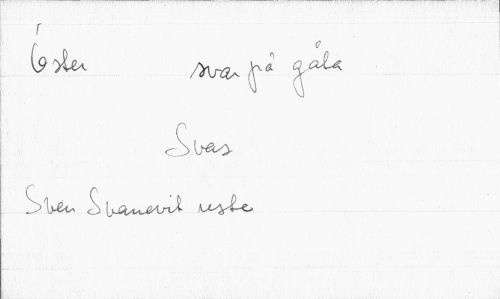 Öster svar på gåta
Svas
Sven Svanevit uste